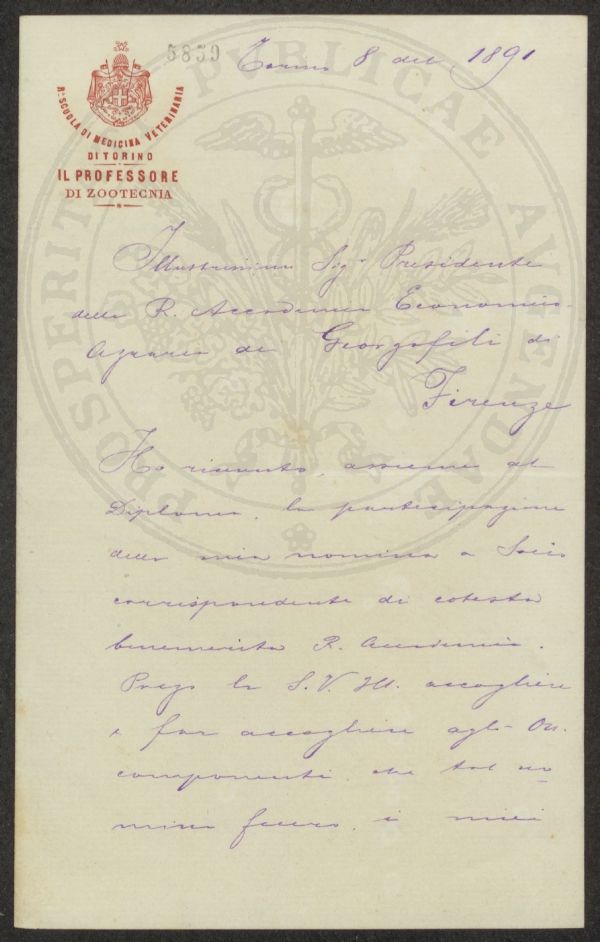 5859
Torino 8 del 1891
Rª SCUOLA DI MEDICINA VETERINARIA
DI TORINO
IL PROFESSORE
DI ZOOTECNIA
PROSPERITATI PUBLICAE AUGENDAE
Illustrissimo Sigr Presidente
della R. Accademia Economico-
Agraria dei Georgofili di
Firenze
Ho ricevuto, assieme al
Diploma, la partecipazione
della mia nomina a Socio
corrispondente di cotesta
benemerita R. Accademia.
Prego la S.V. Ill. accogliere
e far accogliere agli On.
componenti, che tal no
mina fecero, i miei